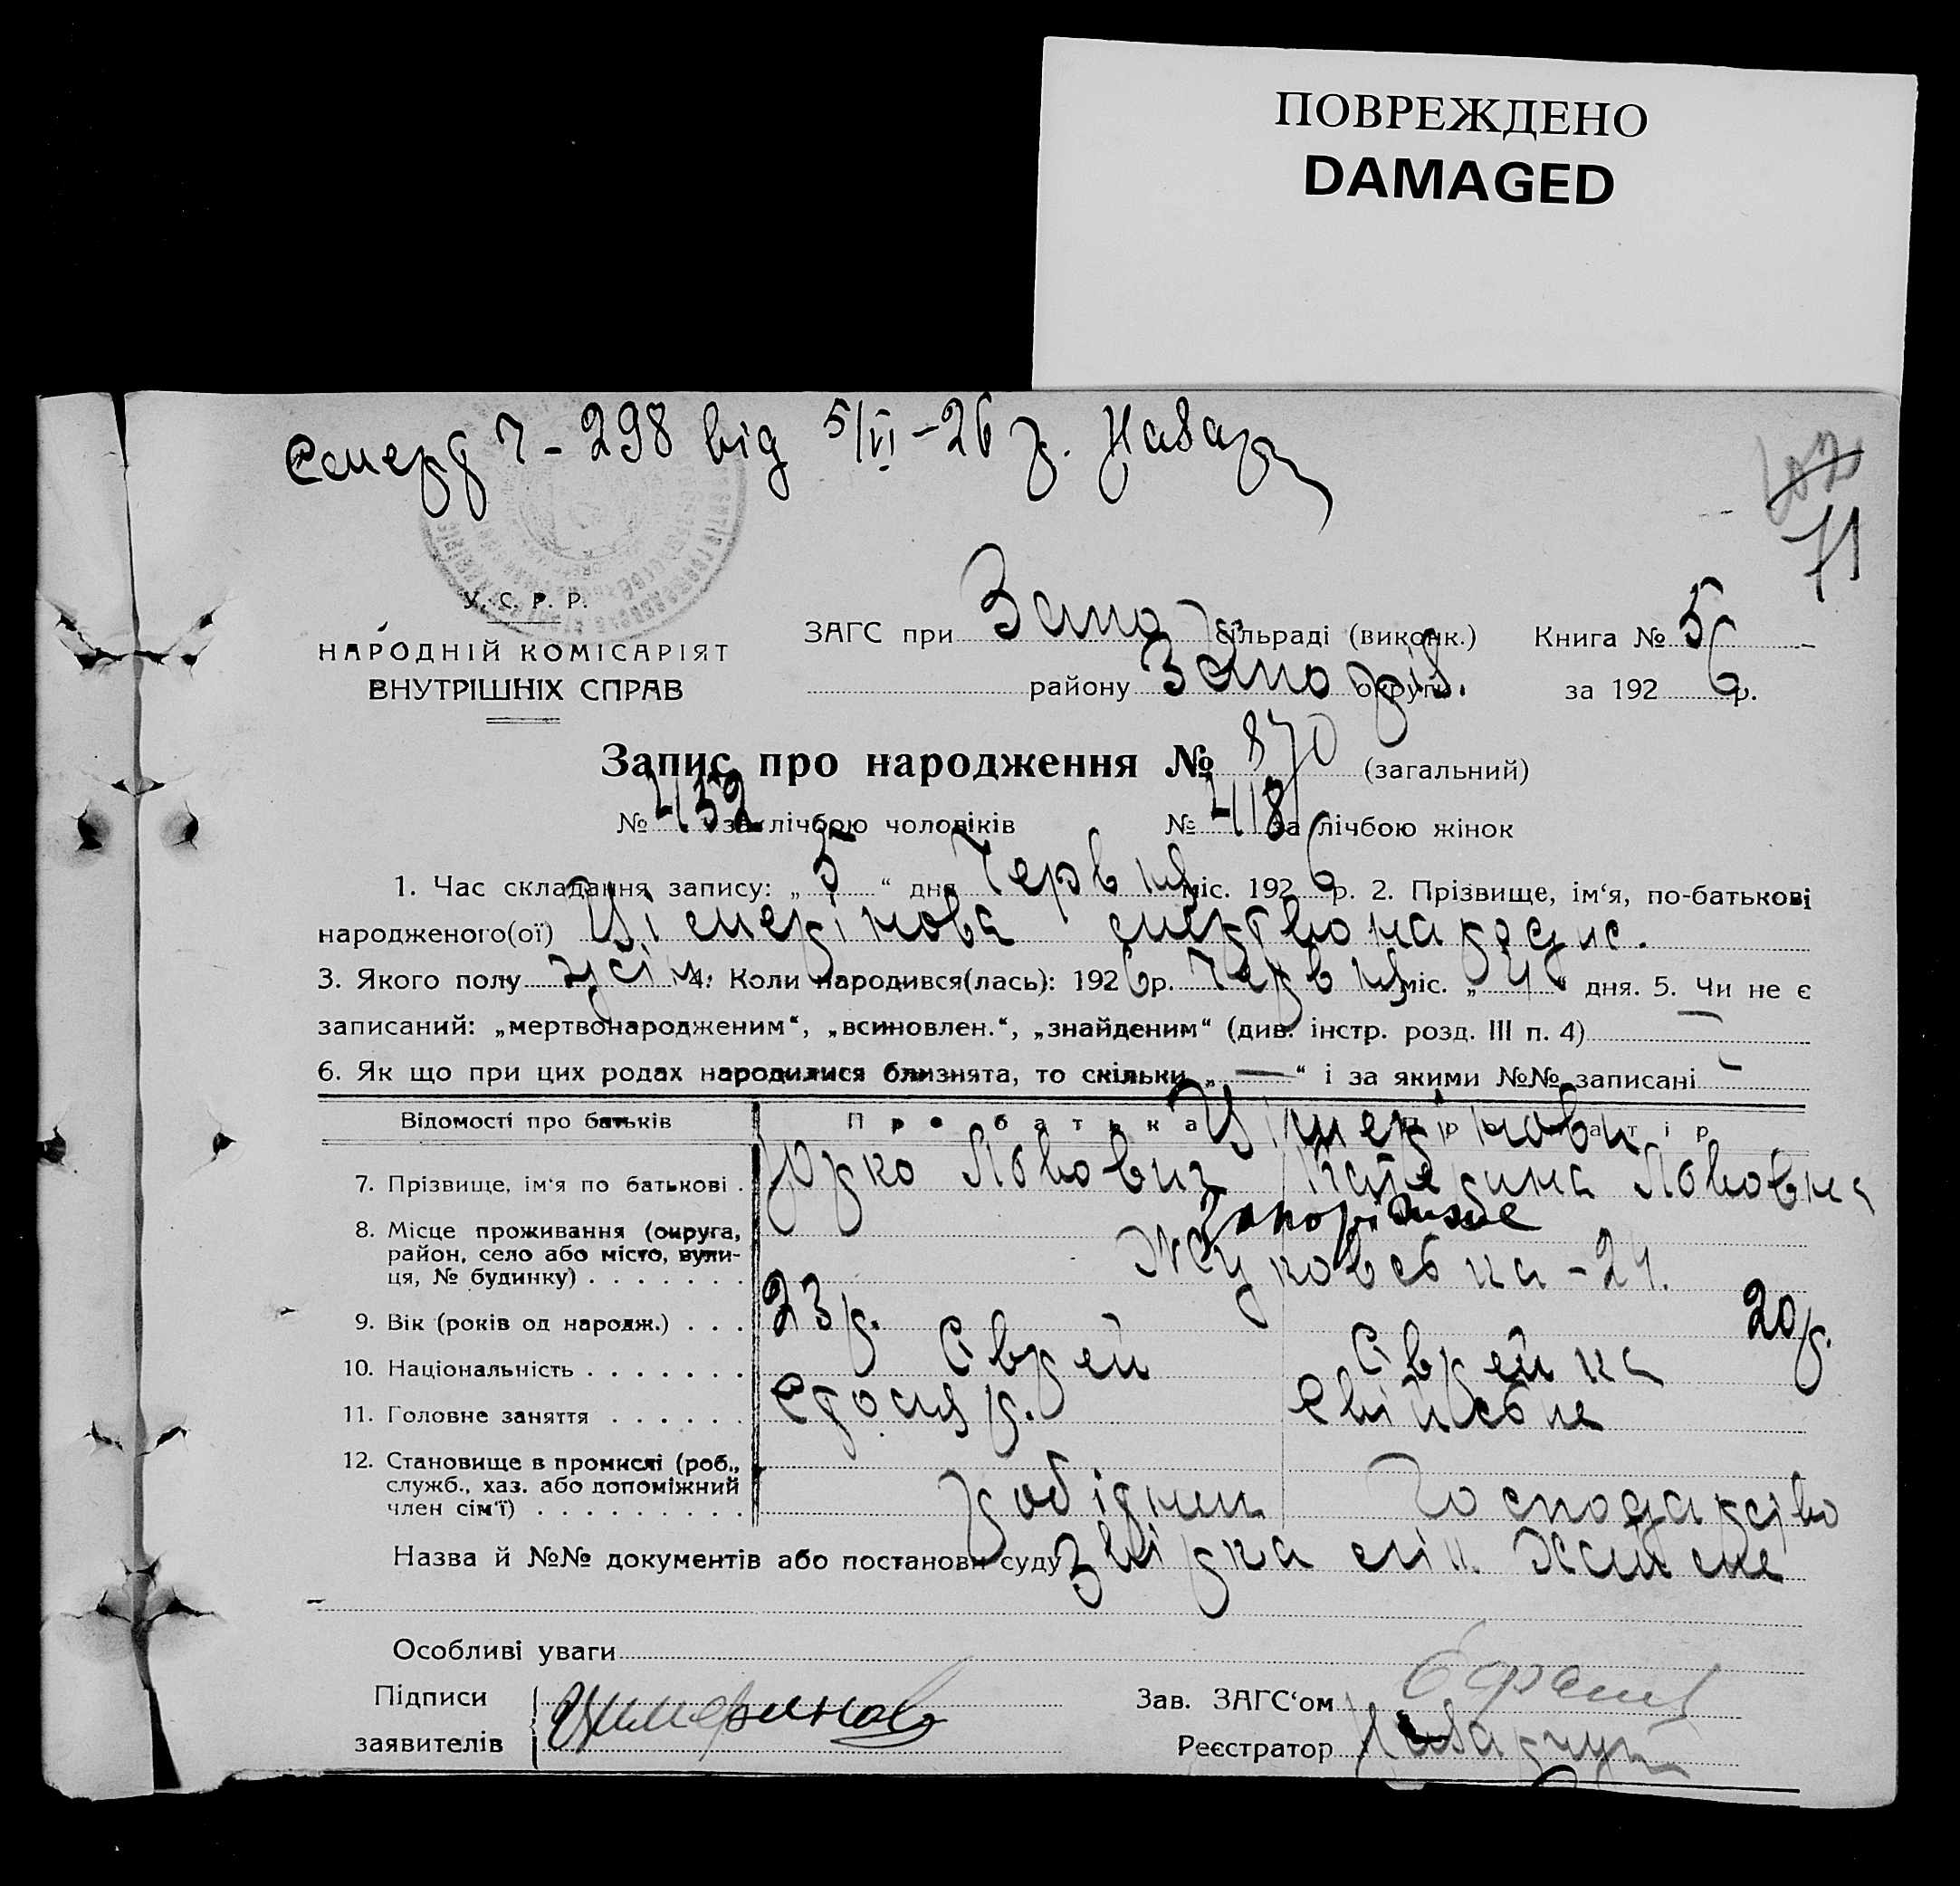 ПОВРЕЖДЕНО
DAMAGED
Смерд Ч-298 від 5/VI-26 р. Назар
71
У. С. Р. Р.
НАРОДНІЙ КОМІСАРІЯТ
ВНУТРІШНІХ СПРАВ
ЗАГС при Запо сільраді (виконк.) Книга № 5
району Запоріз. округи за 1926 р.
Запис про народження № 870 (загальний)
№ 452 за лічбою чоловіків № 418 за лічбою жінок
1. Час складання запису: „5“ дня Червня міс. 1926 р. 2. Прізвище, ім‘я, по-батькові
народженого(ої) Цімерінова мертвонародж.
3. Якого полу жін. 4. Коли народився(лась): 1926 р. Червня міс. „4“ дня. 5. Чи не є
записаний: „мертвонародженим“, „всиновлен.“, „знайденим“ (див. інстр. розд. III п. 4) —
6. Як що при цих родах народилися близнята, то скільки „—“ і за якими №№ записані —
Відомості про батьків Про батька Про матір
Цімерінови
7. Прізвище, ім‘я по батькові . Юрко Львович Катерина Львовна
8. Місце проживання (округа, район, село або місто, вулиця, № будинку) . . . . . . . Запоріжже
Жуковська-24.
9. Вік (років од народж.) . . . 23 р. 20 р.
10. Національність . . . . . . . Єврей Єврейка
11. Головне заняття . . . . . . Столяр. Свійське
12. Становище в промислі (роб., служб., хаз. або допоміжний член сім‘ї) . . . . . . . . . робітник Господарство
Назва й №№ документів або постанови суду звірка
Особливі уваги
Підписи
заявителів Цимеринов
Зав. ЗАГС‘ом
Реєстратор Назарчук